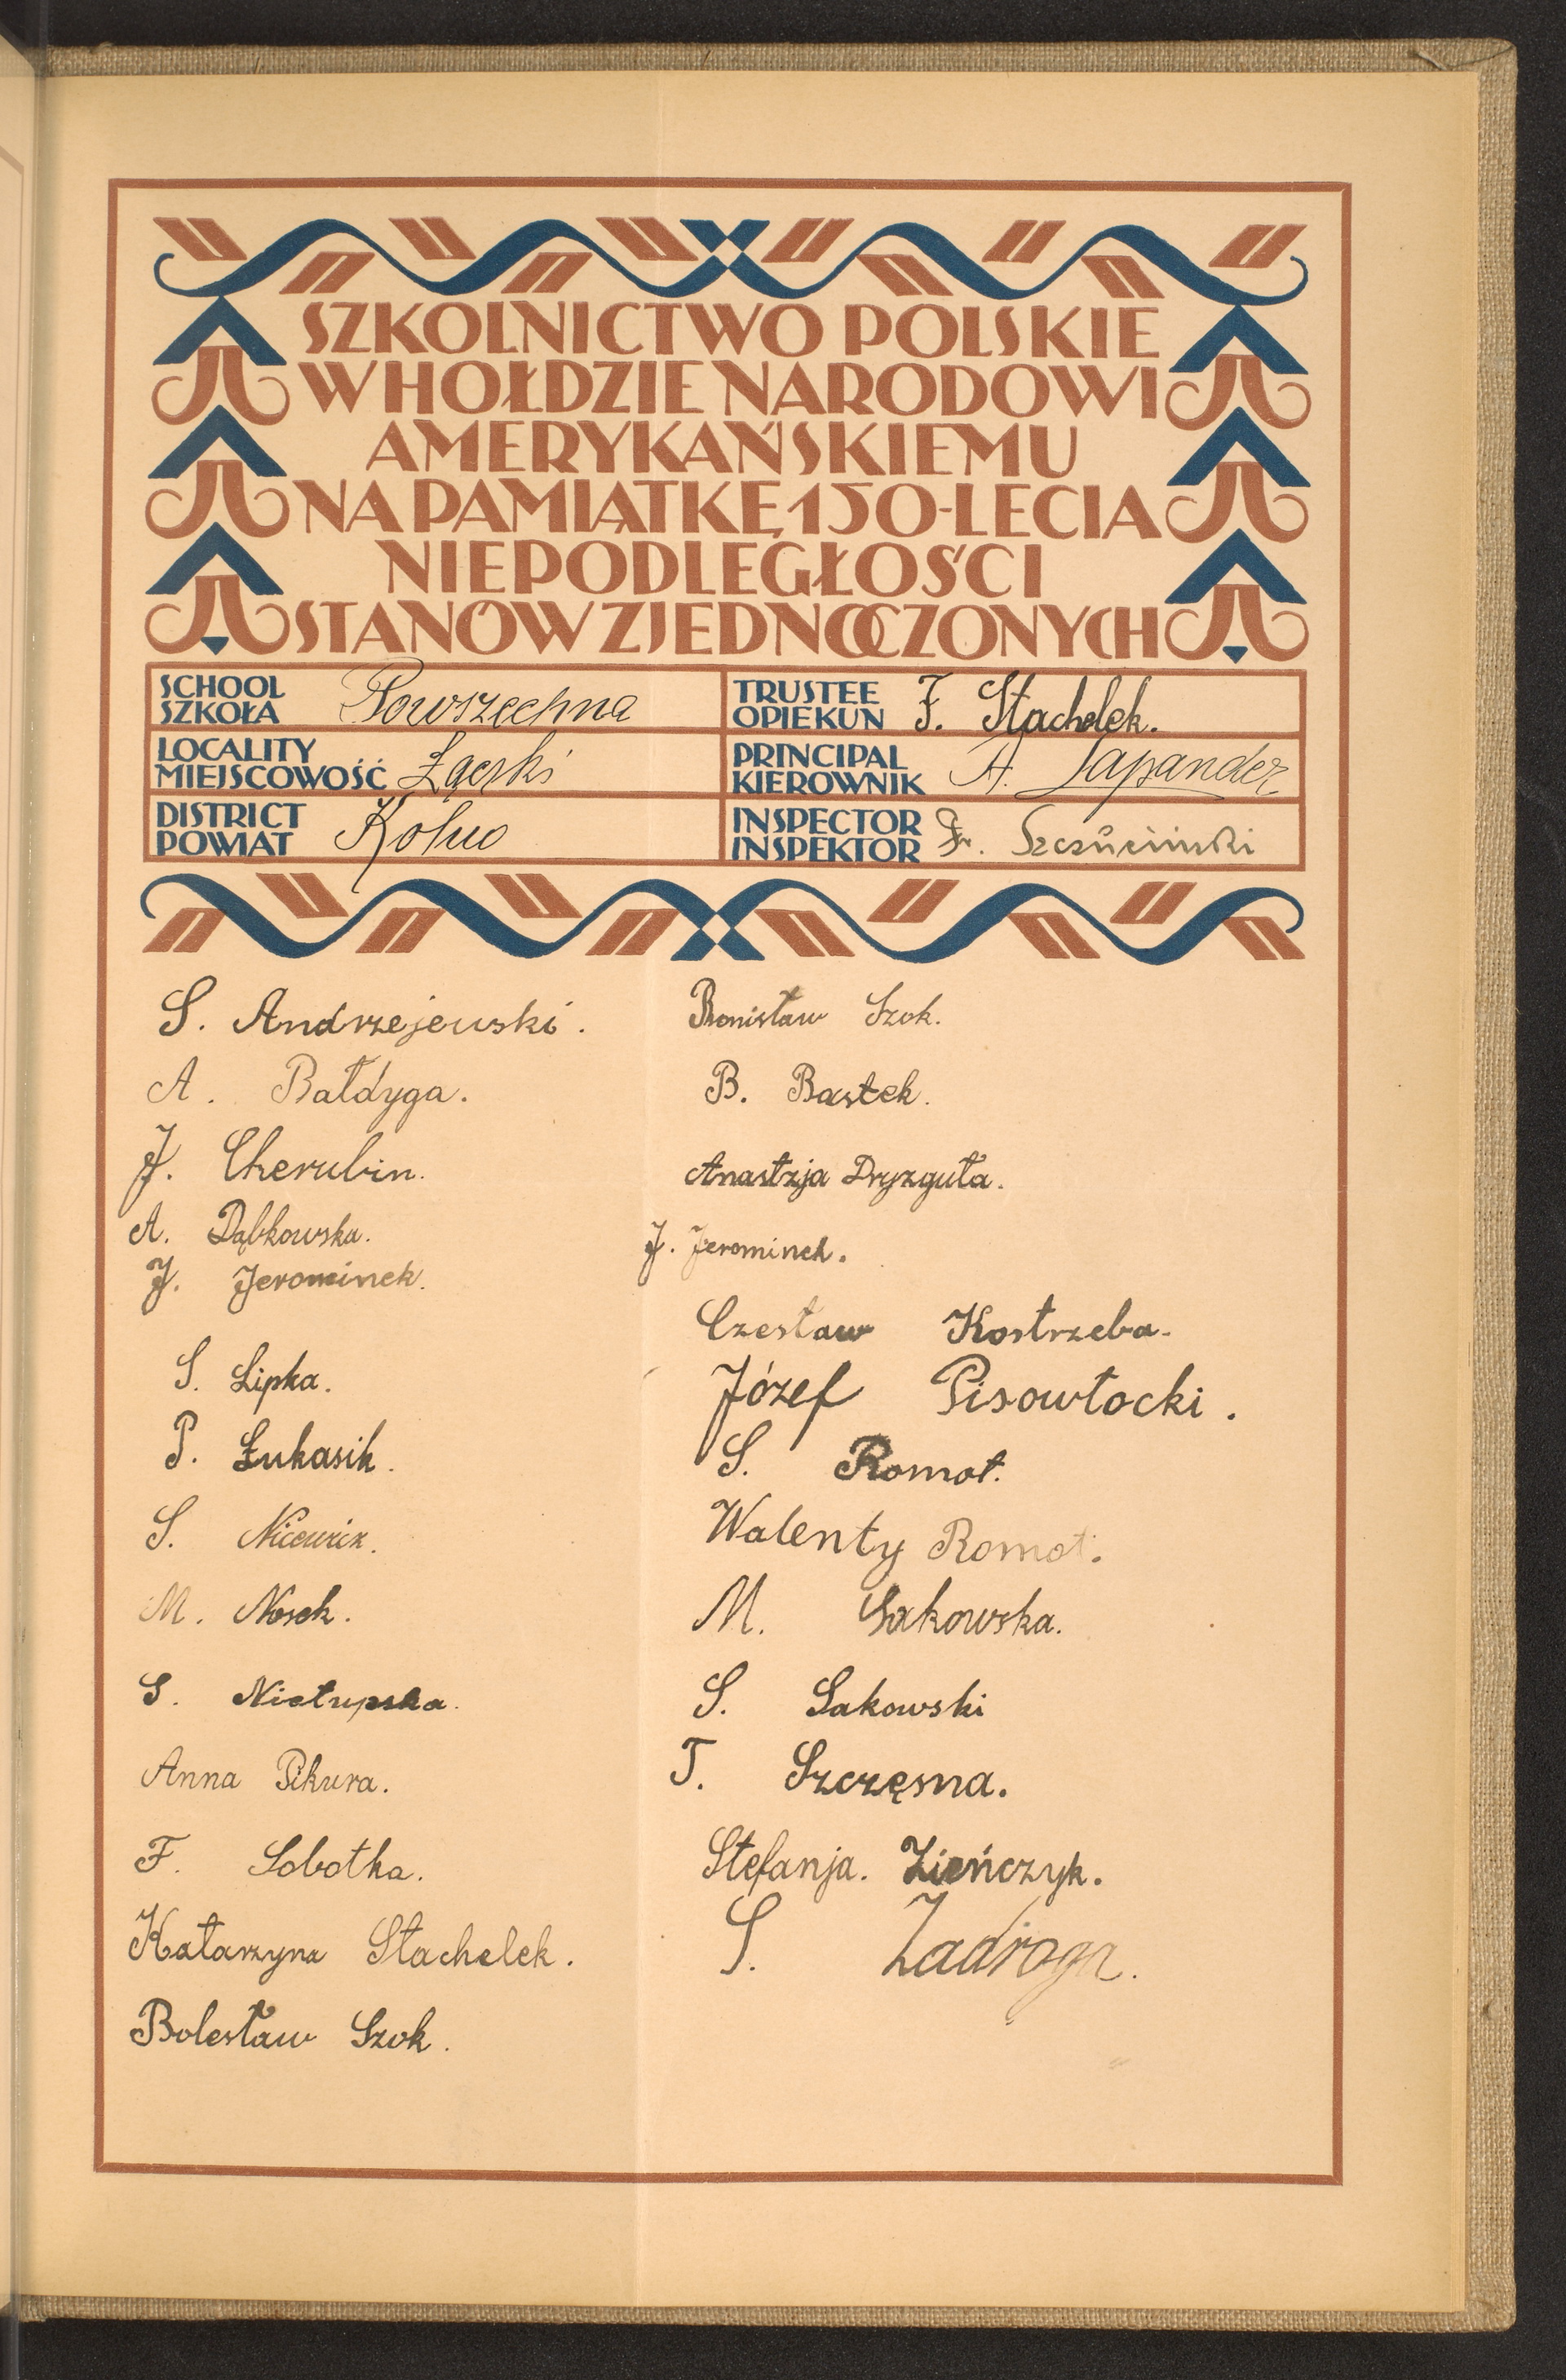 SZKOLNICTWO POLSKIE
W HOŁDZIE NARODOWI
AMERYKAŃSKIEMU
NA PAMIĄTKĘ 150-LECIA
NIEPODLEGŁOŚCI
STANÓW ZJEDNOCZONYCH
SCHOOL
SZKOŁA Powszechna
LOCALITY
MIEJSCOWOŚĆ Łączki
DISTRICT
POWIAT Kolno
TRUSTEE
OPIEKUN F. Stachelek.
PRINCIPAL
KIEROWNIK A. Łapander
INSPECTOR
INSPEKTOR Fr. Szczuciński
S. Andrzejewski.
A. Bałdyga.
J. Cherubin.
A. Dąbkowska.
J. Jerominek.
S. Lipka.
P. Łukasik.
S. Nicewicz.
M. Nosek.
S. Nietupska.
Anna Pikura.
F. Sobotka.
Katarzyna Stachelek.
Bolesław Szok.
Bronisław Szok.
B. Bastek.
Anastzja Dryzguła.
J. Jerominek.
Czesław Kostrzeba.
Józef Pisowłocki.
S. Romot.
Walenty Romot.
M. Sakowska.
S. Sakowski
T. Szczęsna.
Stefanja. Zieńczyk.
S. Zadroga.